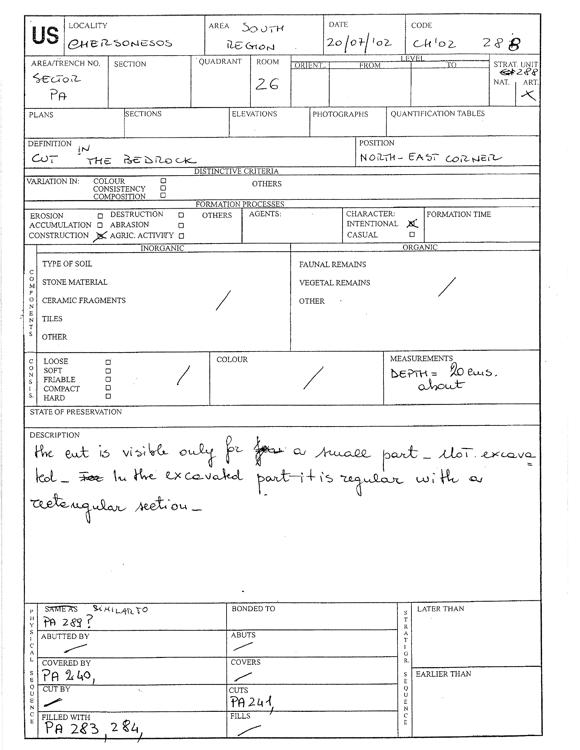 US
LOCALITY
CHERSONESOS
AREA SOUTH
REGION
DATE
20/07/'02
CODE
CH'02 288
AREA/TRENCH NO.
SECTOR
PA
SECTION
QUADRANT
ROOM
26
LEVEL
ORIENT. FROM TO
STRAT. UNIT
288
NAT. ART.
X
PLANS
SECTIONS
ELEVATIONS
PHOTOGRAPHS
QUANTIFICATION TABLES
DEFINITION
CUT IN THE BEDROCK
POSITION
NORTH-EAST CORNER
DISTINCTIVE CRITERIA
VARIATION IN:
COLOUR
CONSISTENCY
COMPOSITION
OTHERS
FORMATION PROCESSES
EROSION
ACCUMULATION
CONSTRUCTION
DESTRUCTION
ABRASION
AGRIC. ACTIVITY
OTHERS
AGENTS:
CHARACTER:
INTENTIONAL
CASUAL
FORMATION TIME
COMPONENTS
INORGANIC
TYPE OF SOIL
STONE MATERIAL
CERAMIC FRAGMENTS
TILES
OTHER
ORGANIC
FAUNAL REMAINS
VEGETAL REMAINS
OTHER
CONSIS.
LOOSE
SOFT
FRIABLE
COMPACT
HARD
COLOUR
MEASUREMENTS
DEPTH = 20 cms.
about
STATE OF PRESERVATION
DESCRIPTION
the cut is visible only for a small part _ Not excava
ted _ In the excavated part it is regular with a
rectangular section _
PHYSICAL SEQUENCE
SAME AS SIMILAR TO
PA 289?
ABUTTED BY
COVERED BY
PA 240,
CUT BY
FILLED WITH
PA 283, 284,
BONDED TO
ABUTS
COVERS
CUTS
PA 241,
FILLS
STRATIGR. SEQUENCE
LATER THAN
EARLIER THAN